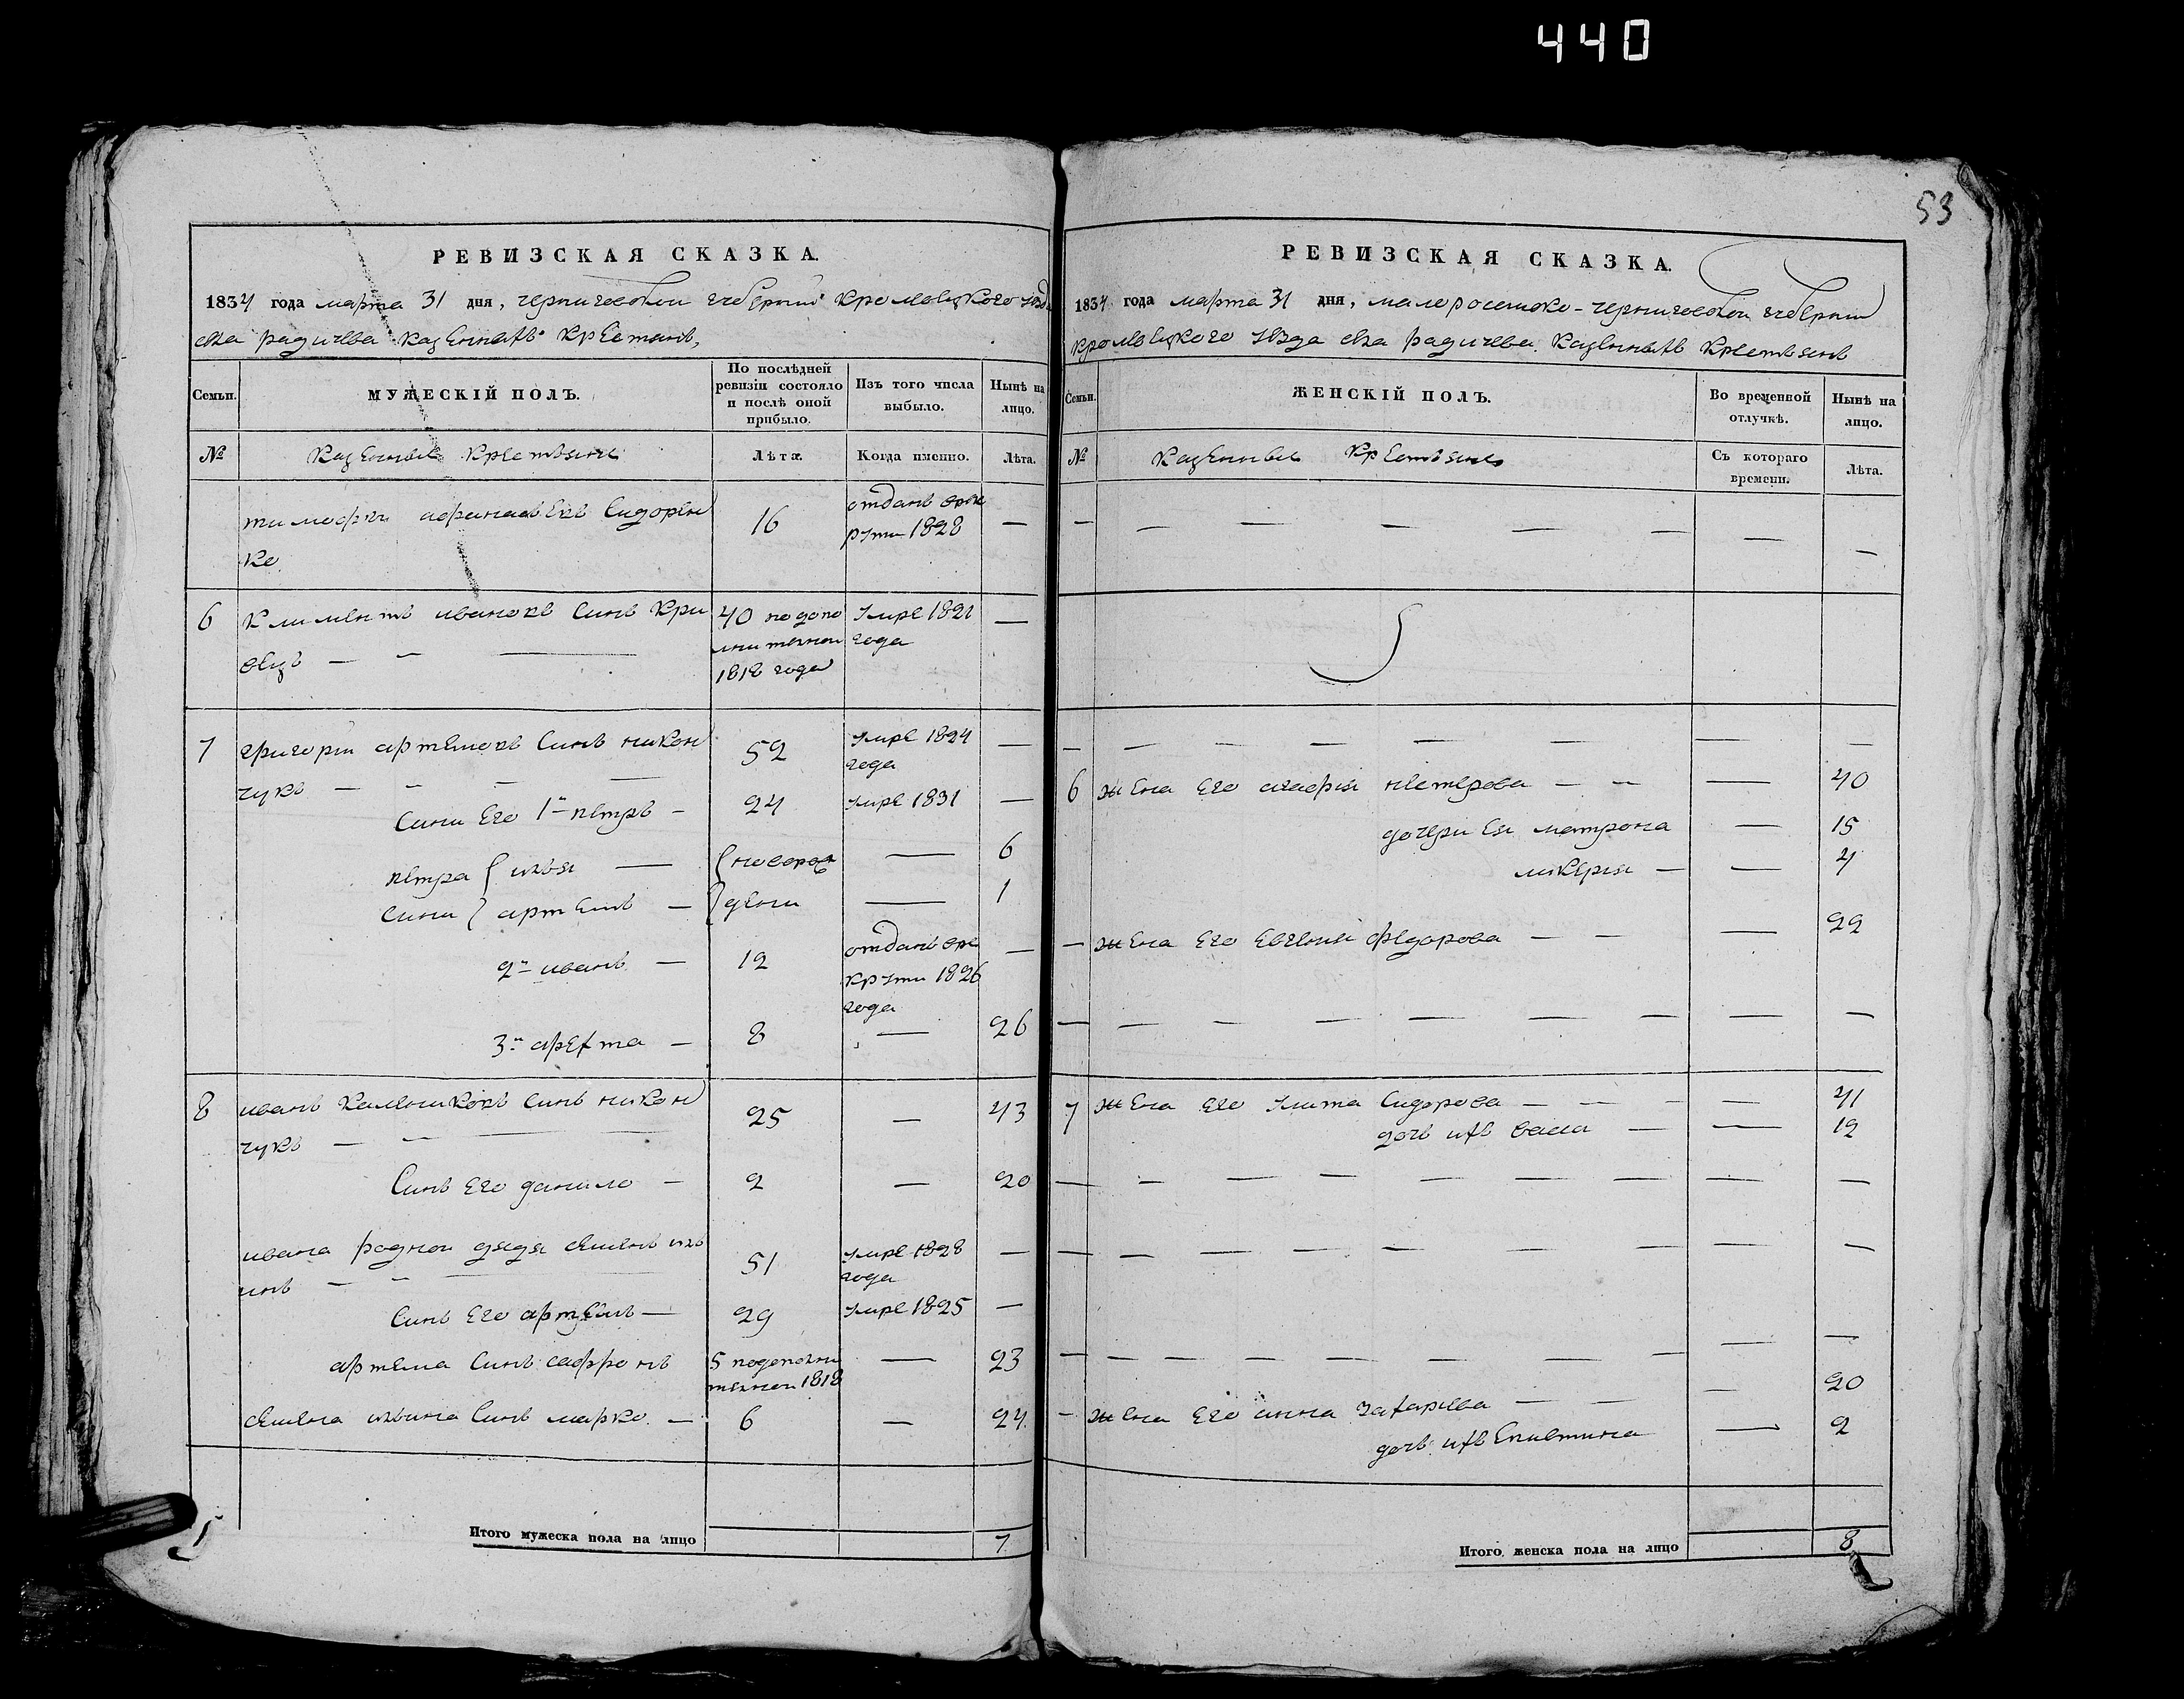 440
53
РЕВИЗСКАЯ СКАЗКА.
1834 года марта 31 дня, черниговской губернии кролевецкого уезда
села радичева казенныхъ крестянъ,
Семьи.
МУЖЕСКІЙ ПОЛЪ.
По послѣдней ревизіи состояло и послѣ оной прибыло.
Изъ того числа выбыло.
Нынѣ на лицо.
№
Казенные крестьяне
Лѣта.
Когда именно.
Лѣта.
тимофей афанасіевъ Сидорен
ко
16
отданъ врек
рути 1828
—
6 климентъ ивановъ Синъ Кри
вецъ — —
40 по допо
лнителной
1818 года
Умре 1821
года
—
7 григорій артемовъ Синъ никон
чукъ — — — —
52
Умре 1824
года
—
Сини Его 1й петръ —
24
Умре 1831
—
петра { илья —
{ новорож
—
6
Сини } артемъ —
} дени
—
1
2й иванъ —
12
отданъ вре
крути 1826
года
—
3й арефта —
8
—
26
8 иванъ Калениковъ Синъ никон
чукъ — —
25
—
43
Синъ Его данило —
2
—
20
ивана родной дядя семенъ иль
инъ — —
51
Умре 1828
года
—
Синъ Его артемъ —
29
Умре 1825
—
артема Синъ сафронъ
5 подополни
телной 1818
—
23
семена ильина Синъ марко. —
6
—
24
Итого мужеска пола на лицо
7
РЕВИЗСКАЯ СКАЗКА.
1834 года марта 31 дня, малоросииско-черниговской губернии
кролевецкого уезда села радичева. Казенныхъ крестьянъ
Семьи.
ЖЕНСКІЙ ПОЛЪ.
Во временной отлучкѣ.
Нынѣ на лицо.
№
Казенные Крестьяне
Съ котораго времени.
Лѣта.
6 жена Его агафия нестерова — — — 40
дочери Ея матрона — 15
лукерия — — 4
— жена Его Евгения федорова — — — 22
7 жена Его Улита Сидорова — — — — 41
дочь ихъ васса — — 12
— жена Его анна захариева — — — 20
дочь ихъ Епистина — 2
Итого женска пола на лицо
8